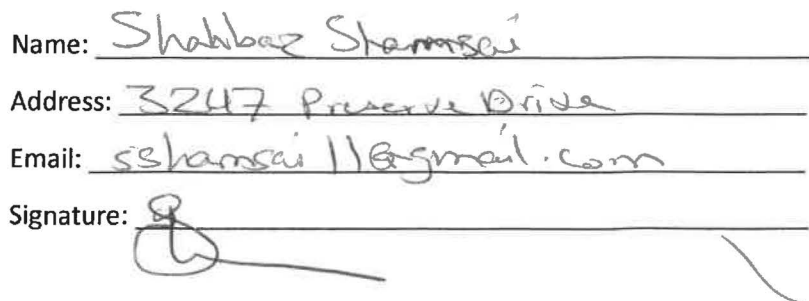 Name: Shahbaz Shamsai
Address: 3247 Preserve Drive
Email: sshamsai11@gmail.com
Signature: